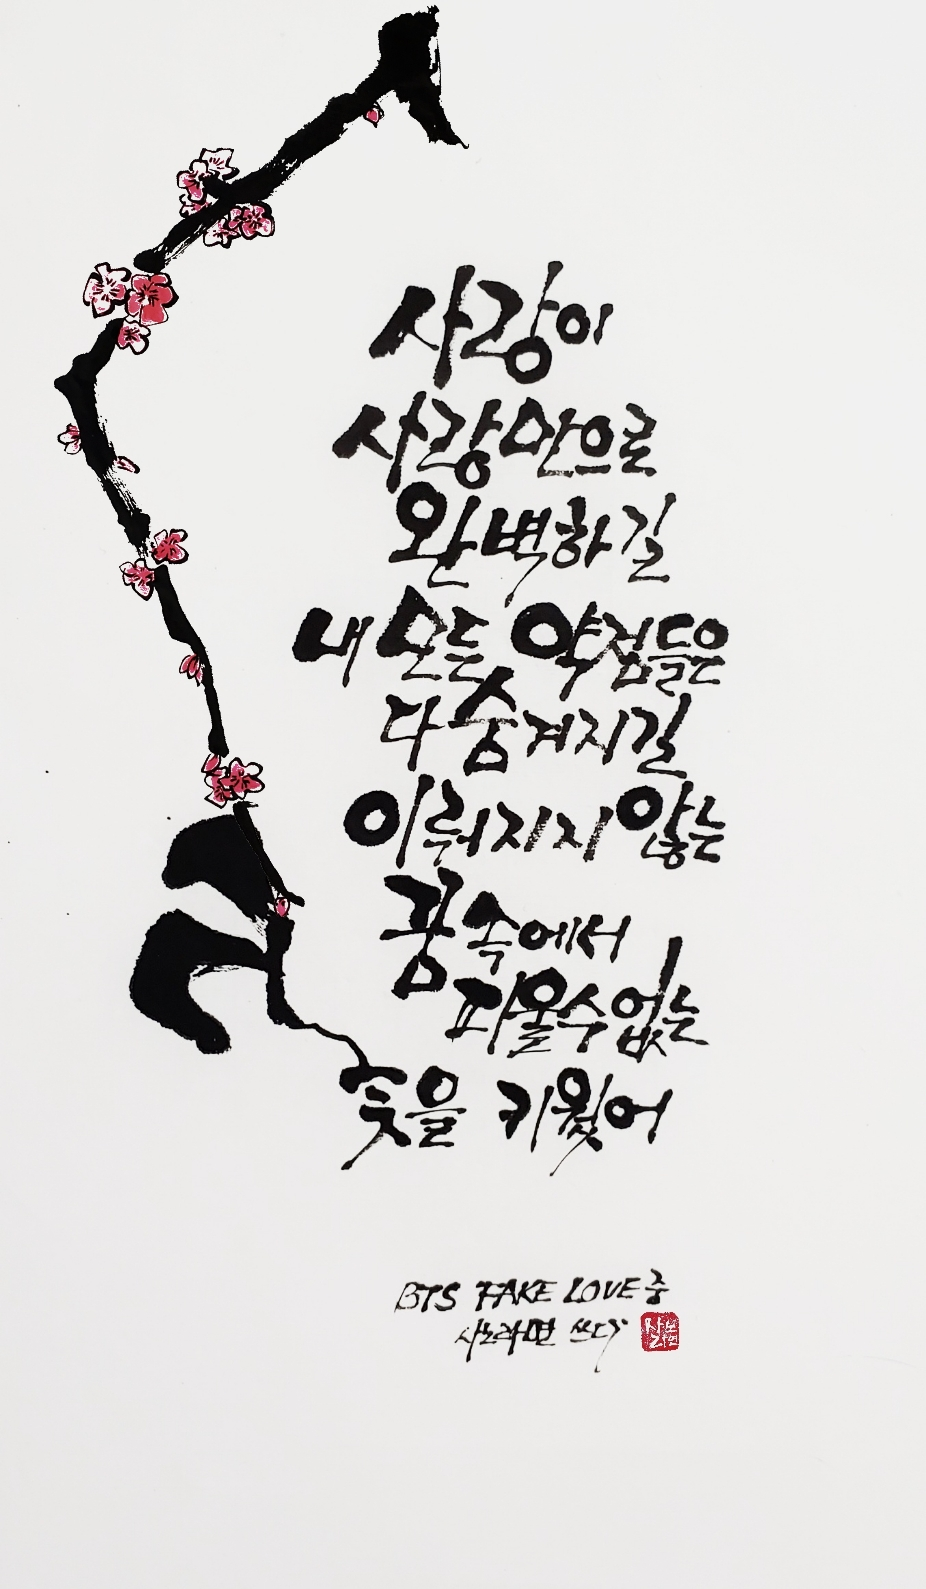 사랑이
사랑만으로
완벽하길
내 모든 약점들은
다 숨겨지길
이뤄지지 않는
꿈속에서
피울수 없는
꽃을 키웠어
BTS FAKE LOVE 중
쓰다